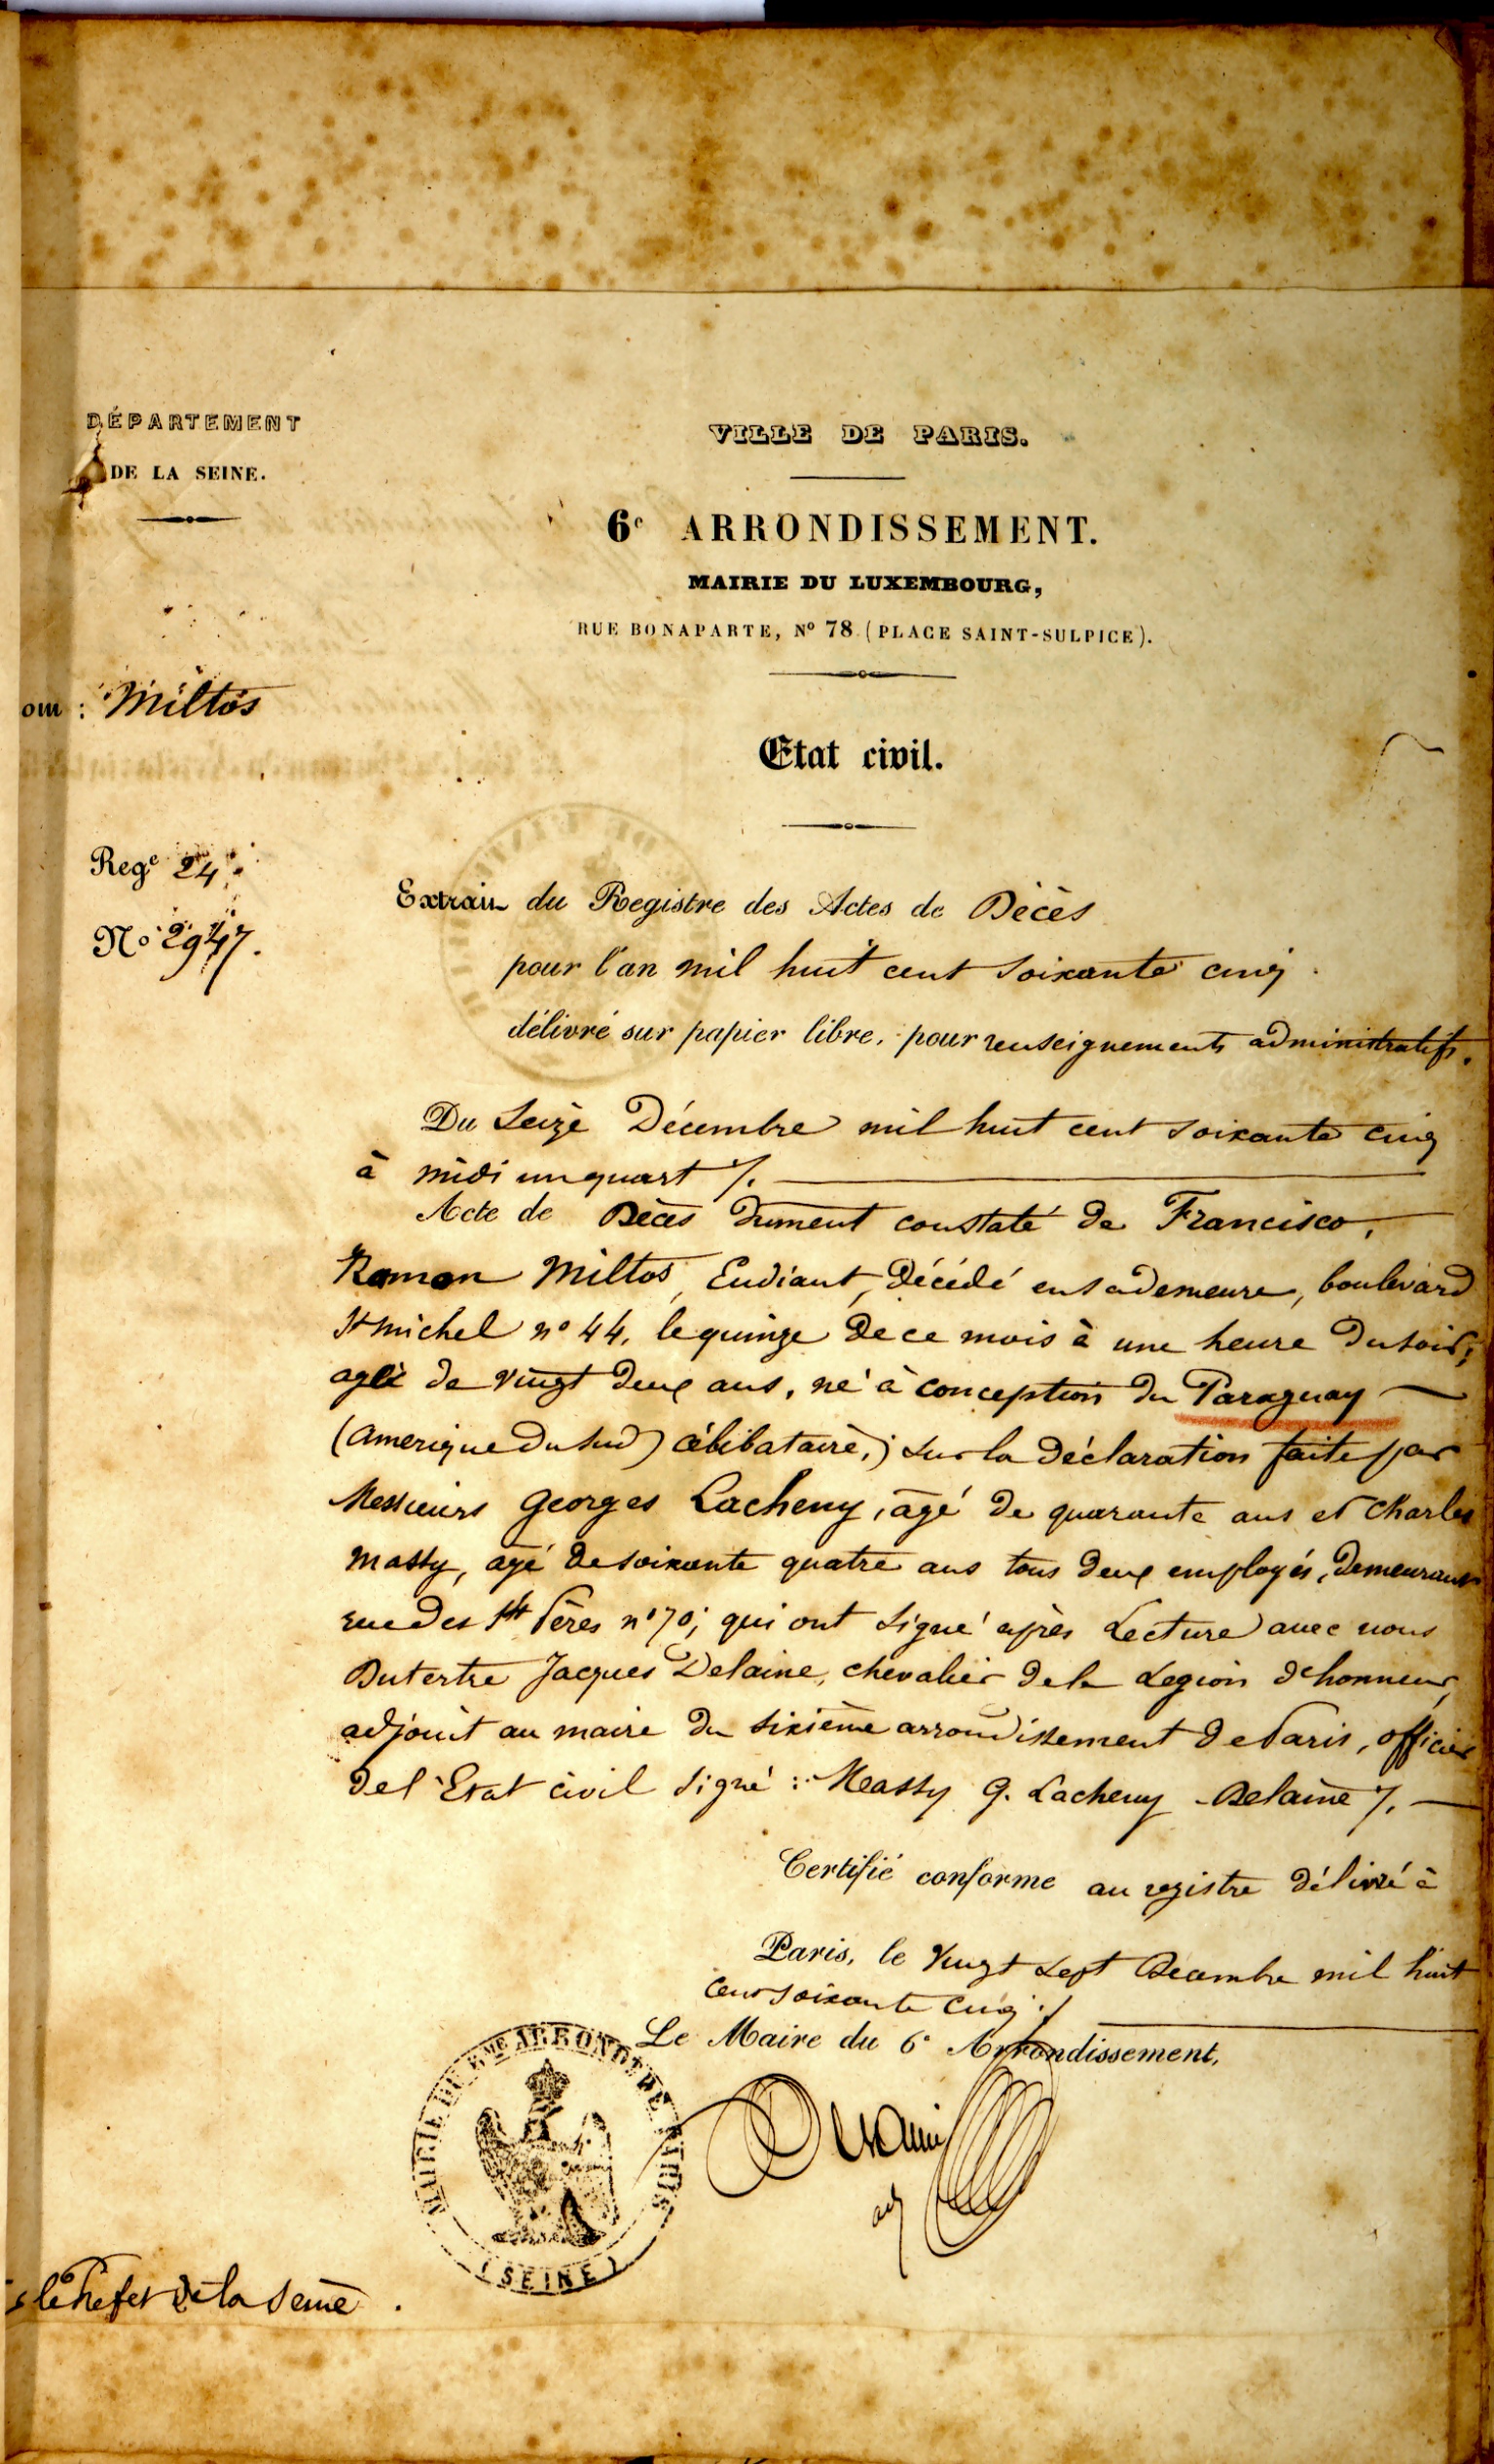 DÉPARTEMENT
DE LA SEINE.
VILLE DE PARIS.
6e ARRONDISSEMENT.
MAIRIE DU LUXEMBOURG,
RUE BONAPARTE, No 78 (PLACE SAINT-SULPICE).
om : Miltos
Etat civil.
Rege 24.
No 2947.
Extrait du Registre des Actes de Décès
pour l'an mil huit cent soixante cinq.
délivré sur papier libre, pour renseignements administratifs.
Du Seize Décembre mil huit cent soixante cinq
à midi un quart /.
Acte de Décès dument constaté de Francisco,
Roman Miltos, Eudiant, décédé en sa demeure, boulevard
St michel no 44, le quinze de ce mois à une heure du soir,
agé de vingt deux ans, né à conception du Paraguay
(amerique du sud) célibataire,; sur la déclaration faite par
Messieurs Georges Lacheny, âgé de quarante ans et Charles
Massy, agé de soixante quatre ans tous deux employés, demeurant
rue des Sts Pères no 70; qui ont signé après Lecture avec nous
Dutertre Jacques Delaine, chevalier de la Legion d'honneur,
adjoint au maire du sixième arrondissement de Paris, officier
de l'Etat civil signé : Massy G. Lacheny - Delaine /.
Certifié conforme au registre délivré à
Paris, le vingt sept Décembre mil huit
cent soixante cinq ./
Le Maire du 6e Arrondissement,
MAIRIE DU 6ME ARRONDT DE PARIS
(SEINE)
adj
le Prefet de la Seine.